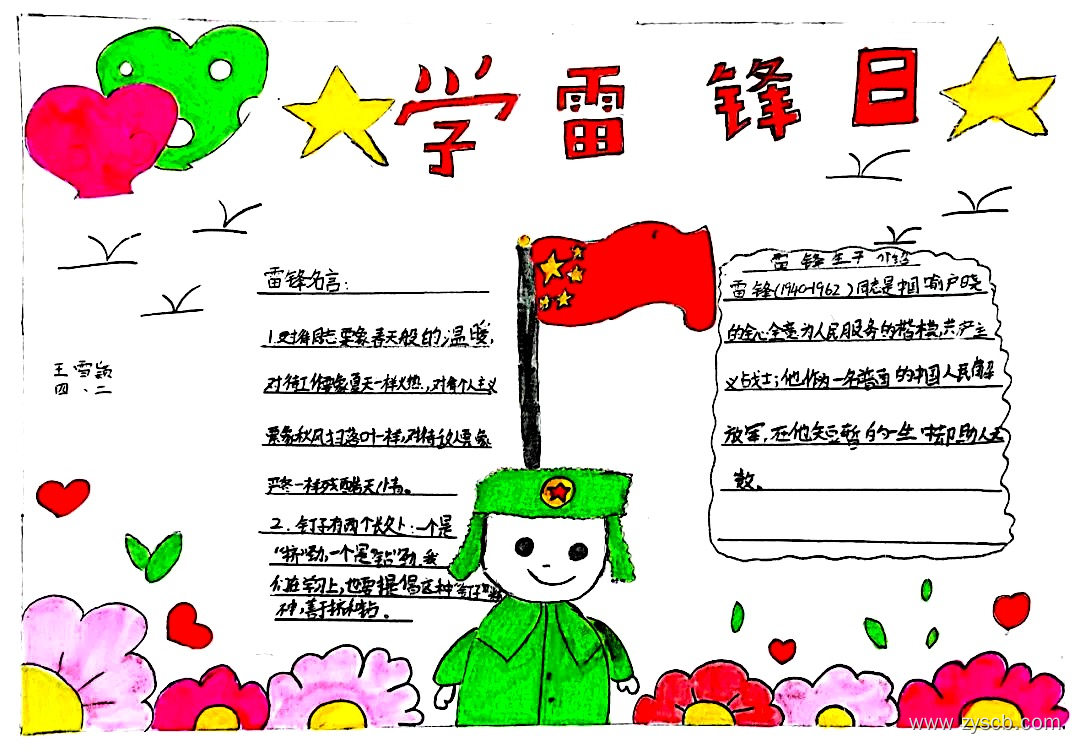 学雷锋日
雷锋名言:
1.对待同志要象春天般的温暖,
对待工作要象夏天一样火热,对待个人主义
要象秋风扫落叶一样,对待敌人要象
严冬一样残酷无情。
2.钉子有两个长处:一个是
"挤"劲,一个是"钻"劲.我
们在学习上,也要提倡这种"钉子"精
神,善于挤和钻。
雷锋生平介绍
雷锋(1940-1962)同志是中国
的全心全意为人民服务的楷模,共产主
义战士;他作为一名普通的中国人民解
放军,在他短暂的一生中却助人无
数。
王雪
四、二
www.zyscb.com